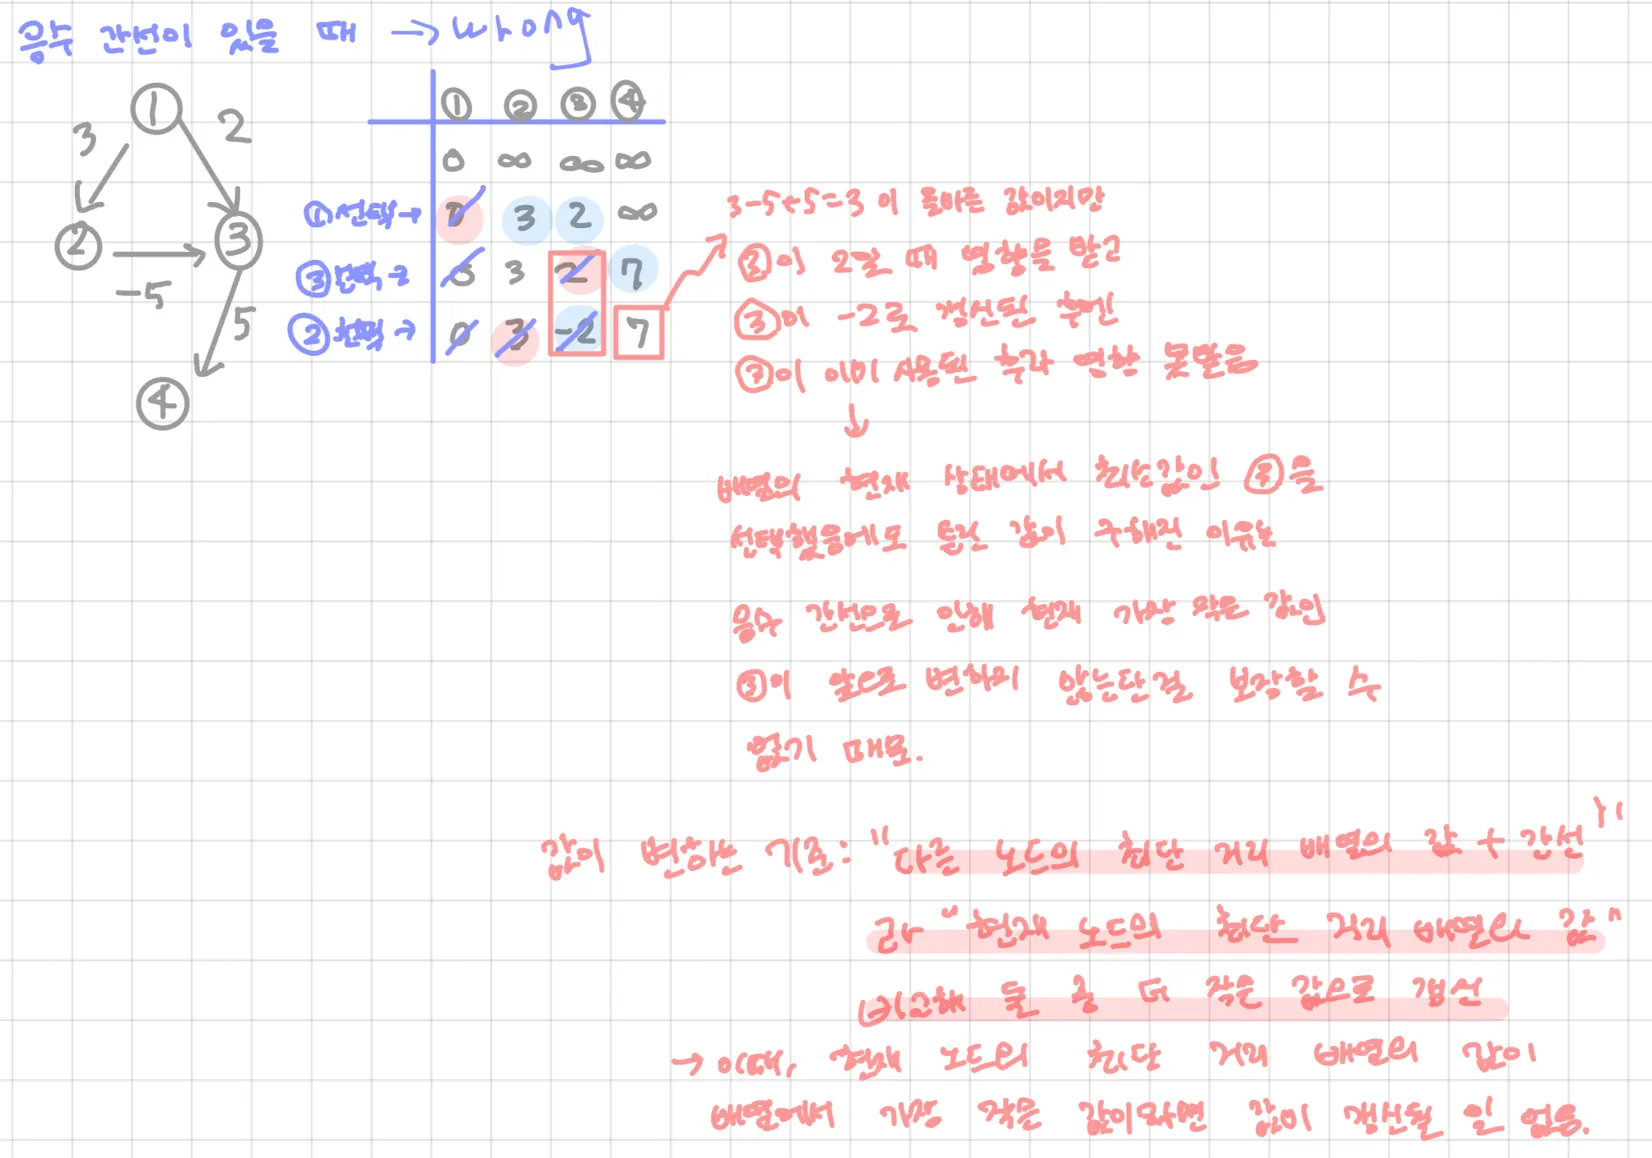 음수 간선이 있을 때 → wrong
① ② ③ ④
0 ∞ ∞ ∞
①선택→ 0 3 2 ∞
③선택→ 0 3 2 7
②선택→ 0 3 -2 7
1
3 2
2 3
-5
5
4
3-5+5=3 이 올바른 값이지만
③이 2일 때 영향을 받고
③이 -2로 갱신된 후엔
③이 이미 사용된 후라 영향 못받음
↓
배열의 현재 상태에서 최소값인 ③을
선택했음에도 틀린 값이 구해진 이유는
음수 간선으로 인해 현재 가장 작은 값인
③이 앞으로 변하지 않는단걸 보장할 수
없기 때문.
값이 변하는 기준: "다른 노드의 최단 거리 배열의 값 + 간선"
과 "현재 노드의 최단 거리 배열의 값"
비교해 둘 중 더 작은 값으로 갱신
→ 이때, 현재 노드의 최단 거리 배열의 값이
배열에서 가장 작은 값이라면 값이 갱신될 일 없음.